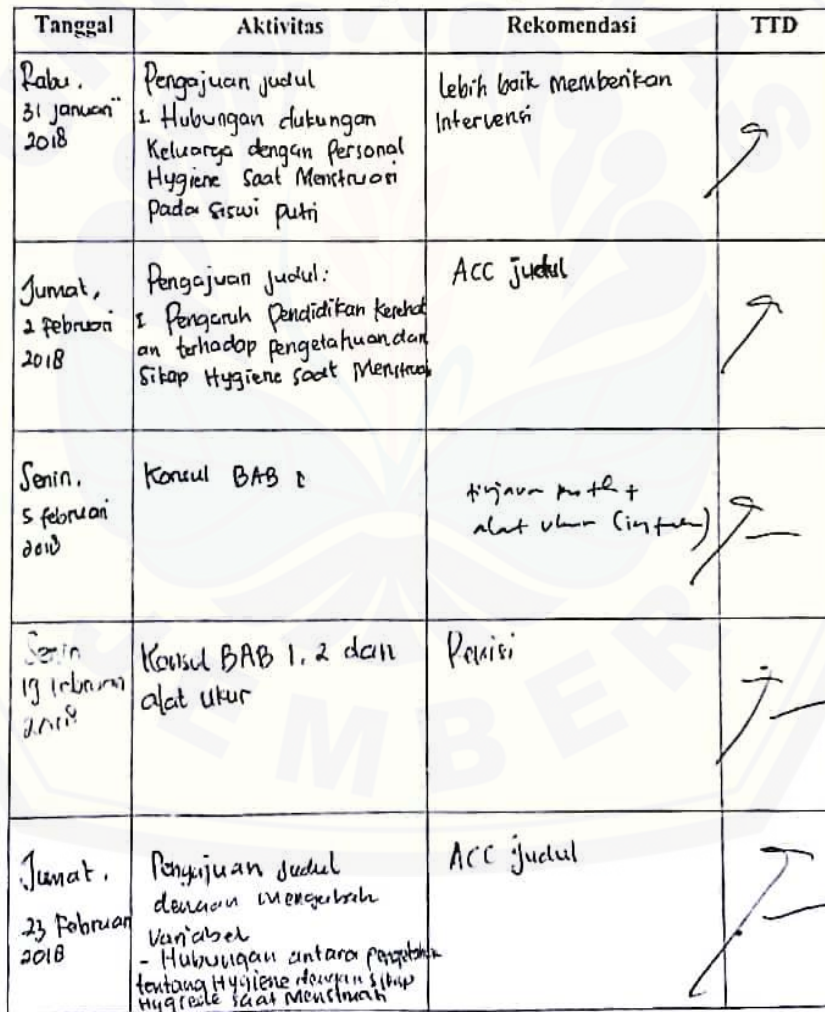 Tanggal Aktivitas Rekomendasi TTD
Rabu,
31 januari
2018
Pengajuan judul
1. Hubungan dukungan
Keluarga dengan Personal
Hygiene Saat Menstruasi
Pada Siswi putri
Lebih baik memberikan
Intervensi
Jumat,
2 Februari
2018
Pengajuan judul:
1 Pengaruh Pendidikan Kesehat
an terhadap pengetahuan dan
Sikap Hygiene saat Menstruasi
ACC judul
Senin,
5 februari
2018
Konsul BAB 1
alat ukur
Senin
19 februari
2018
Konsul BAB 1, 2 dan
alat ukur
Revisi
Jumat,
23 Februari
2018
Pengajuan Judul
dengan mengubah
Variabel
- Hubungan antara pengetahuan
tentang Hygiene dengan sikap
Hygiene saat Menstruasi
ACC judul
JEMBER